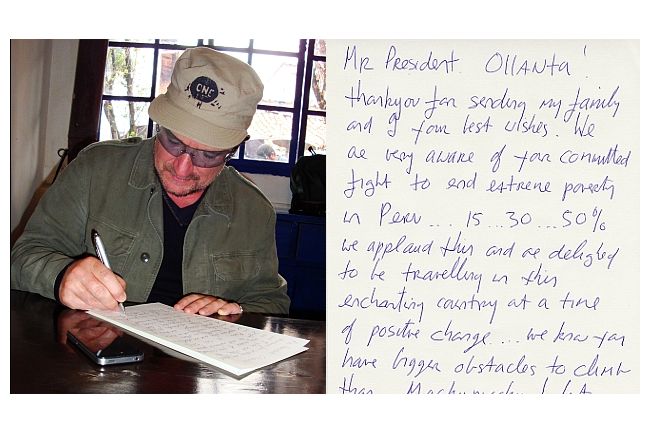 Mr President. Ollanta!
thankyou for sending my family
and I your best wishes. We
are very aware of your committed
fight to end extreme poverty
in Peru.... 15...30...50%
we applaud this and are delighted
to be travelling in this
enchanting country at a time
of positive change... we know you
have bigger obstacles to climb
than